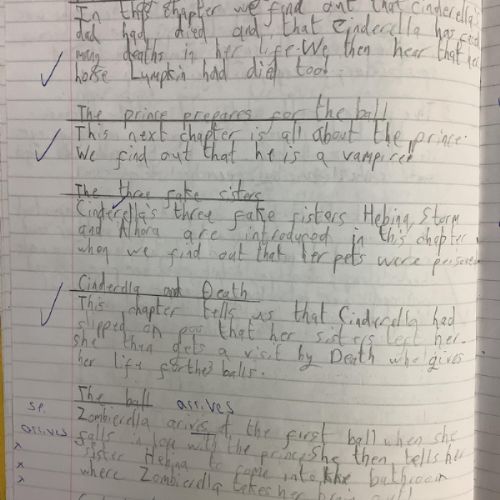 In this chapter we find out that Cinderella's
dad had died and that Cinderella has faced
many deaths in her life. We then hear that her
horse Lumpkin had died too!
The prince prepares for the ball
This next chapter is all about the prince.
We find out that he is a vampire!
The three fake sisters
Cinderella's three fake sisters Hebing, Storm
and Alhora are introduced in this chapter
when we find out that her pets were
Cinderella and Death
This chapter tells us that Cinderella had
slipped on poo that her sisters left her.
she then gets a visit by Death who gives
her life for the balls.
The ball arrives
sp. Zombierella arives at the first ball when she
arrives falls in love with the prince. She then tells her
x sister Hebing to come into the bathroom
x where Zombierella takes her